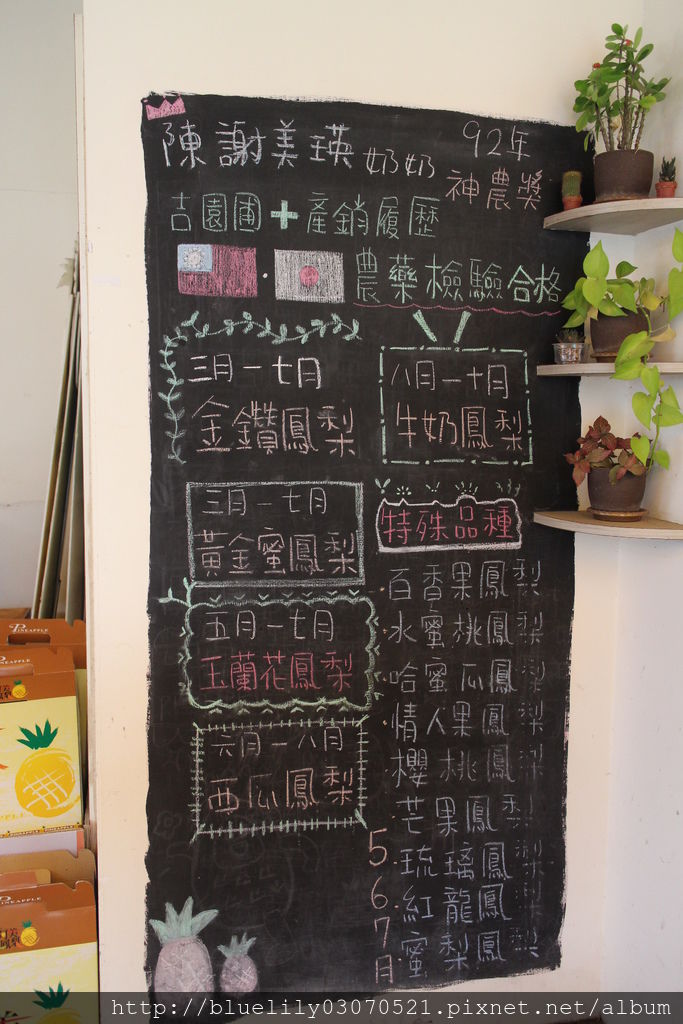 陳謝美瑛奶奶
92年
神農獎
吉園圃+產銷履歷
農藥檢驗合格
三月-七月
金鑽鳳梨
八月-十月
牛奶鳳梨
三月-七月
黃金蜜鳳梨
五月-七月
玉蘭花鳳梨
六月-八月
西瓜鳳梨
特殊品種
百香果鳳梨
水蜜桃鳳梨
哈蜜瓜鳳梨
情人果鳳梨
櫻桃鳳梨
芒果鳳梨
琉璃鳳梨
紅龍鳳梨
蜜梨鳳梨
5.6.7月
PINEAPPLE
PINEAPPLE
http://bluelily03070521.pixnet.net/album